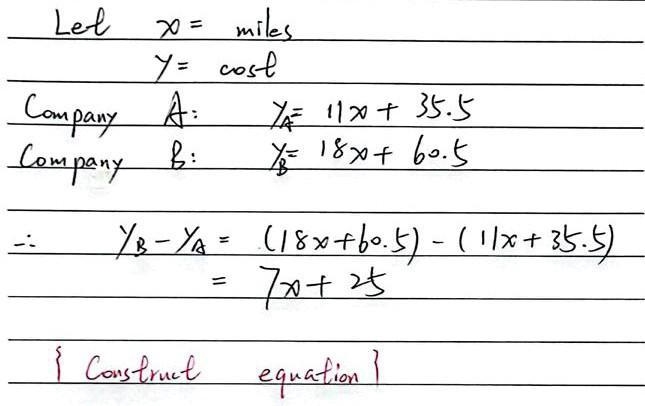 Let x = miles
y = cost
Company A: y_A = 11x + 35.5
Company B: y_B = 18x + 60.5
∴ y_B - y_A = (18x+60.5) - (11x+35.5)
= 7x + 25
{ Construct equation }